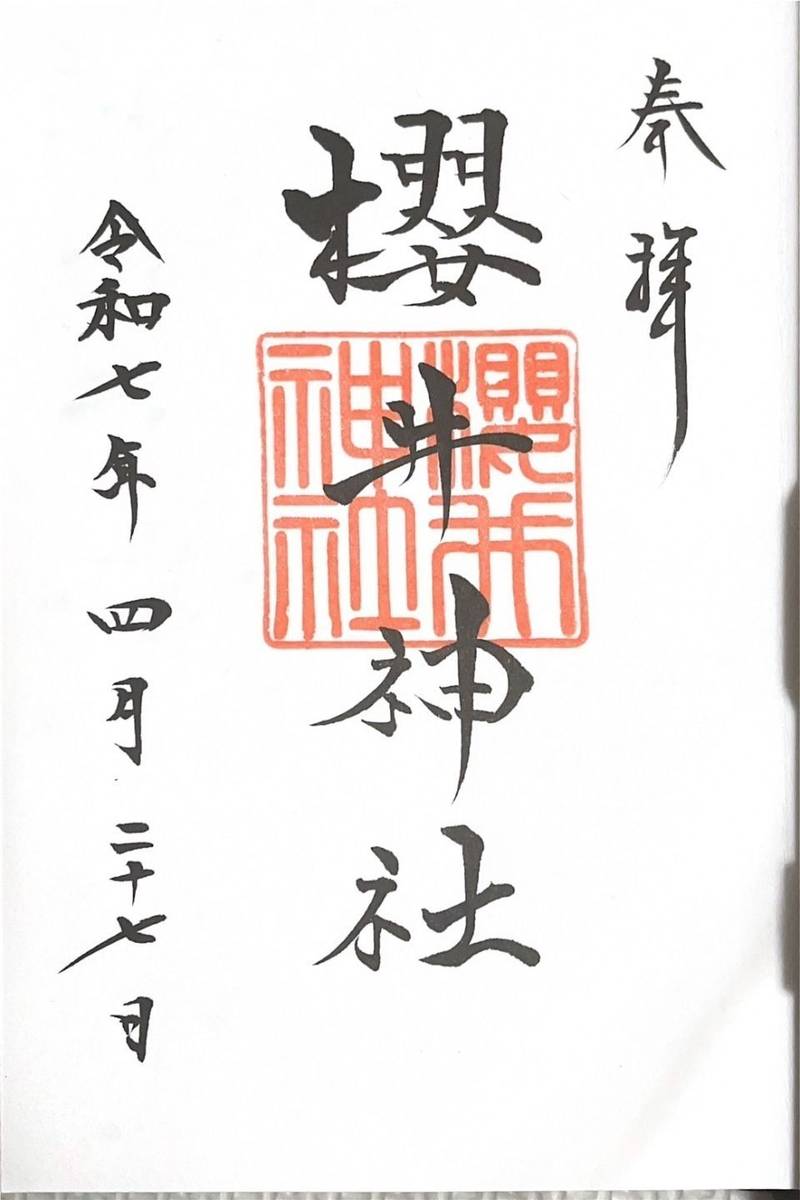 奉拝
櫻井神社
櫻井
神社
令和七年四月二十七日